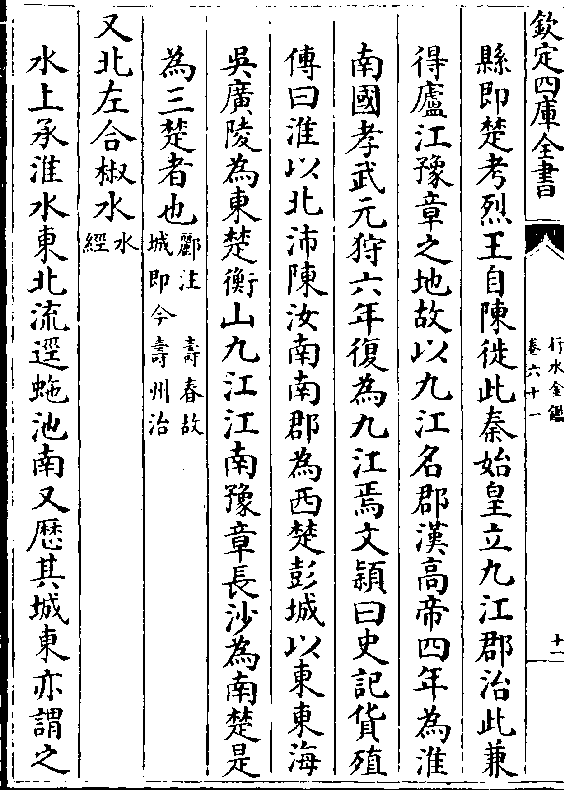 欽定四庫全書
行水金鑑
卷六十一
十一
縣即楚考烈王自陳徙此秦始皇立九江郡治此兼
得廬江豫章之地故以九江名郡漢高帝四年為淮
南國孝武元狩六年復為九江焉文頴曰史記貨殖
傳曰淮以北沛陳汝南南郡為西楚彭城以東東海
吳廣陵為東楚衡山九江江南豫章長沙為南楚是
為三楚者也酈注 壽春故
城即今壽州治
又北左合椒水水
經
水上承淮水東北流逕虵池南又厯其城東亦謂之